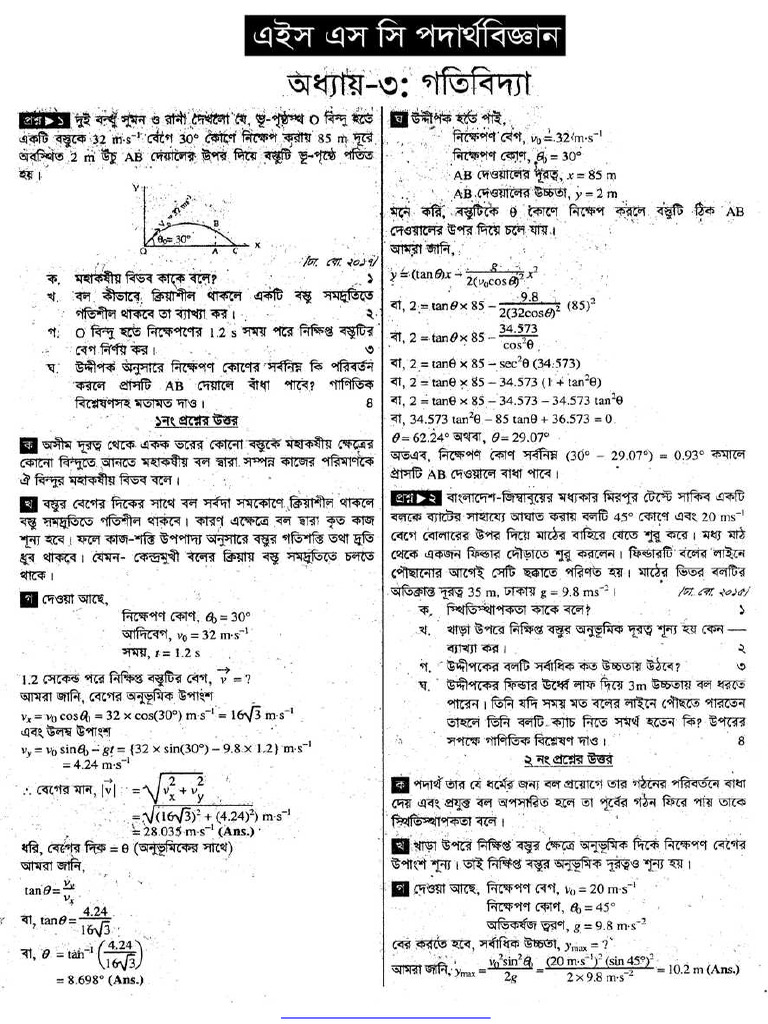 এইস এস সি পদার্থবিজ্ঞান
অধ্যায়-৩: গতিবিদ্যা
প্রশ্ন ▶ ১ দুই বন্ধু সুমন ও রানা দেখলো যে, ভূ-পৃষ্ঠস্থ O বিন্দু হতে
একটি বস্তুকে 32 m·s⁻¹ বেগে 30° কোণে নিক্ষেপ করায় 85 m দূরে
অবস্থিত 2 m উঁচু AB দেয়ালের উপর দিয়ে বস্তুটি ভূ-পৃষ্ঠে পতিত
হয়।
Y
B
θ₀= 30°
O A C X
/ঢা. বো. ২০১৭/
ক. মহাকর্ষীয় বিভব কাকে বলে? ১
খ. বল কীভাবে ক্রিয়াশীল থাকলে একটি বস্তু সমদ্রুতিতে
গতিশীল থাকবে তা ব্যাখ্যা কর। ২
গ. O বিন্দু হতে নিক্ষেপণের 1.2 s সময় পরে নিক্ষিপ্ত বস্তুটির
বেগ নির্ণয় কর। ৩
ঘ. উদ্দীপক অনুসারে নিক্ষেপণ কোণের সর্বনিম্ন কি পরিবর্তন
করলে প্রাসটি AB দেয়ালে বাঁধা পাবে? গাণিতিক
বিশ্লেষণসহ মতামত দাও। 8
১নং প্রশ্নের উত্তর
ক অসীম দূরত্ব থেকে একক ভরের কোনো বস্তুকে মহাকর্ষীয় ক্ষেত্রের
কোনো বিন্দুতে আনতে মহাকর্ষীয় বল দ্বারা সম্পন্ন কাজের পরিমাণকে
ঐ বিন্দুর মহাকর্ষীয় বিভব বলে।
খ বস্তুর বেগের দিকের সাথে বল সর্বদা সমকোণে ক্রিয়াশীল থাকলে
বস্তু সমদ্রুতিতে গতিশীল থাকবে। কারণ এক্ষেত্রে বল দ্বারা কৃত কাজ
শূন্য হবে। ফলে কাজ-শক্তি উপপাদ্য অনুসারে বস্তুর গতিশক্তি তথা দ্রুতি
ধ্রুব থাকবে। যেমন- কেন্দ্রমুখী বলের ক্রিয়ায় বস্তু সমদ্রুতিতে চলতে
থাকে।
গ দেওয়া আছে,
নিক্ষেপণ কোণ, θ₀ = 30°
আদিবেগ, v₀ = 32 m·s⁻¹
সময়, t = 1.2 s
1.2 সেকেন্ড পরে নিক্ষিপ্ত বস্তুটির বেগ, v⃗ = ?
আমরা জানি, বেগের অনুভূমিক উপাংশ
vₓ = v₀ cos θ₀ = 32 × cos(30°) m·s⁻¹ = 16√3 m·s⁻¹
এবং উলম্ব উপাংশ
v_y = v₀ sinθ₀ – gt = {32 × sin(30°) – 9.8 × 1.2} m·s⁻¹
= 4.24 m·s⁻¹
∴ বেগের মান, |v⃗| = √(vₓ² + v_y²)
= √((16√3)² + (4.24)²) m·s⁻¹
= 28.035 m·s⁻¹ (Ans.)
ধরি, বেগের দিক = θ (অনুভূমিকের সাথে)
আমরা জানি,
tanθ = v_y/vₓ
বা, tanθ = 4.24/16√3
বা, θ = tan⁻¹ (4.24/16√3)
= 8.698° (Ans.)
ঘ উদ্দীপক হতে পাই,
নিক্ষেপণ বেগ, v₀ = 32 m·s⁻¹
নিক্ষেপণ কোণ, θ₀ = 30°
AB দেওয়ালের দূরত্ব, x = 85 m
AB দেওয়ালের উচ্চতা, y = 2 m
মনে করি, বস্তুটিকে θ কোণে নিক্ষেপ করলে বস্তুটি ঠিক AB
দেওয়ালের উপর দিয়ে চলে যায়।
আমরা জানি,
y = (tanθ)x – g/2(v₀cosθ)² x²
বা, 2 = tanθ × 85 – 9.8/2(32cosθ)² (85)²
বা, 2 = tanθ × 85 – 34.573/cos²θ
বা, 2 = tanθ × 85 – sec²θ (34.573)
বা, 2 = tanθ × 85 – 34.573 (1 + tan²θ)
বা, 2 = tanθ × 85 – 34.573 – 34.573 tan²θ
বা, 34.573 tan²θ – 85 tanθ + 36.573 = 0
θ = 62.24° অথবা, θ = 29.07°
অতএব, নিক্ষেপণ কোণ সর্বনিম্ন (30° – 29.07°) = 0.93° কমালে
প্রাসটি AB দেওয়ালে বাধা পাবে।
প্রশ্ন ▶ ২ বাংলাদেশ-জিম্বাবুয়ের মধ্যকার মিরপুর টেস্টে সাকিব একটি
বলকে ব্যাটের সাহায্যে আঘাত করায় বলটি 45° কোণে এবং 20 ms⁻¹
বেগে বোলারের উপর দিয়ে মাঠের বাহিরে যেতে শুরু করে। মধ্য মাঠ
থেকে একজন ফিল্ডার দৌড়াতে শুরু করলেন। ফিল্ডারটি বলের লাইনে
পৌছানোর আগেই সেটি ছক্কাতে পরিণত হয়। মাঠের ভিতর বলটির
অতিক্রান্ত দূরত্ব 35 m, ঢাকায় g = 9.8 ms⁻²।
ক. স্থিতিস্থাপকতা কাকে বলে? ১
খ. খাড়া উপরে নিক্ষিপ্ত বস্তুর অনুভূমিক দূরত্ব শূন্য হয় কেন —
ব্যাখ্যা কর। ২
গ. উদ্দীপকের বলটি সর্বাধিক কত উচ্চতায় উঠবে? ৩
ঘ. উদ্দীপকের ফিল্ডার ঊর্ধ্বে লাফ দিয়ে 3m উচ্চতায় বল ধরতে
পারেন। তিনি যদি সময় মত বলের লাইনে পৌছতে পারতেন
তাহলে তিনি বলটি ক্যাচ নিতে সমর্থ হতেন কি? উপরের
সপক্ষে গাণিতিক বিশ্লেষণ দাও। 8
২ নং প্রশ্নের উত্তর
ক পদার্থ তার যে ধর্মের জন্য বল প্রয়োগে তার গঠনের পরিবর্তনে বাধা
দেয় এবং প্রযুক্ত বল অপসারিত হলে তা পূর্বের গঠন ফিরে পায় তাকে
স্থিতিস্থাপকতা বলে।
খ খাড়া উপরে নিক্ষিপ্ত বস্তুর ক্ষেত্রে অনুভূমিক দিকে নিক্ষেপণ বেগের
উপাংশ শূন্য। তাই নিক্ষিপ্ত বস্তুর অনুভূমিক দূরত্বও শূন্য হয়।
গ দেওয়া আছে, নিক্ষেপণ বেগ, v₀ = 20 m·s⁻¹
নিক্ষেপণ কোণ, θ₀ = 45°
অভিকর্ষজ ত্বরণ, g = 9.8 m·s⁻²
বের করতে হবে, সর্বাধিক উচ্চতা, y_max = ?
আমরা জানি, y_max = v₀² sin²θ₀/2g = (20 m·s⁻¹)² (sin 45°)²/2 × 9.8 m·s⁻² = 10.2 m (Ans.)